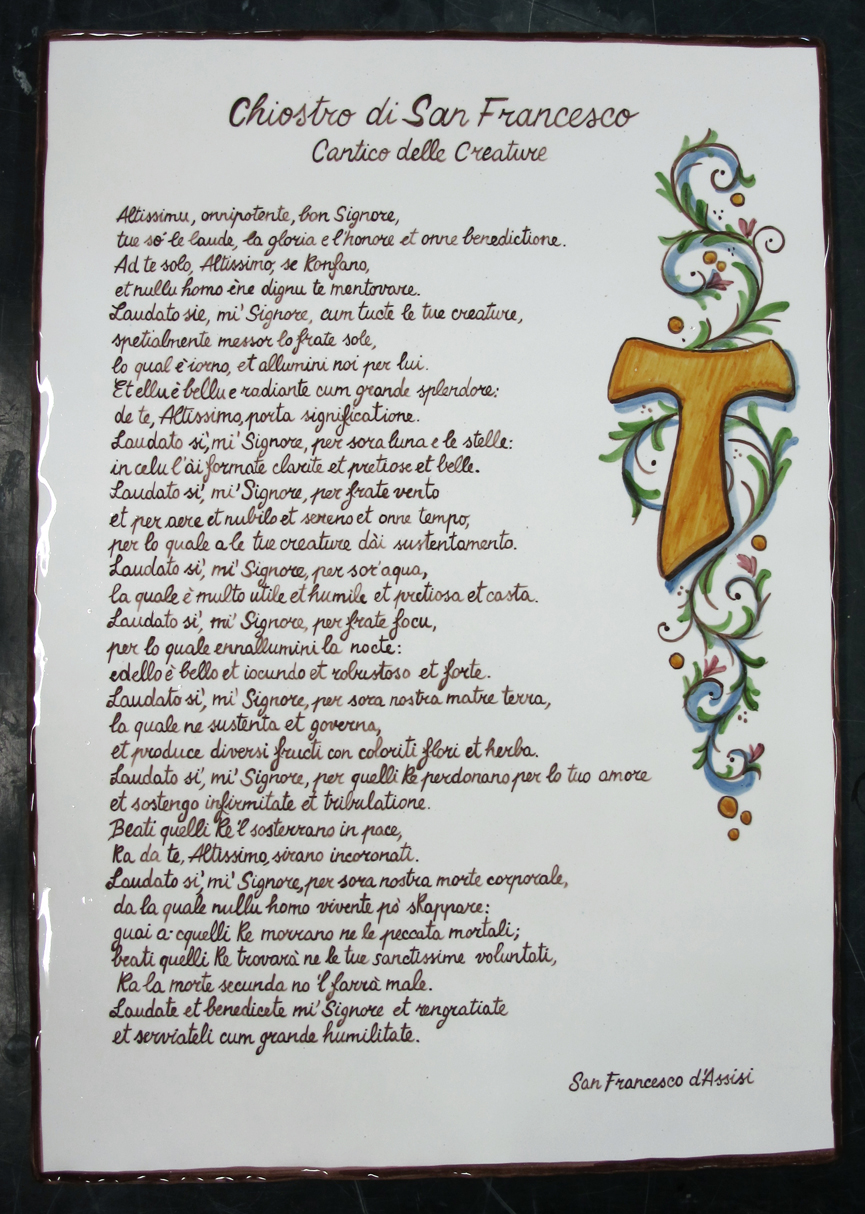 Chiostro di San Francesco
Cantico delle Creature
Altissimu, onnipotente, bon Signore,
tue so' le laude, la gloria e l'honore et onne benedictione.
Ad te solo, Altissimo, se Konfano,
et nullu homo ène dignu te mentovare.
Laudato sie, mi' Signore, cum tucte le tue creature,
spetialmente messor lo frate sole,
lo qual è iorno, et allumini noi per lui.
Et ellu è bellu e radiante cum grande splendore:
de te, Altissimo, porta significatione.
Laudato si', mi' Signore, per sora luna e le stelle:
in celu l'ài formate clarite et pretiose et belle.
Laudato si', mi' Signore, per frate vento
et per aere et nubilo et sereno et onne tempo,
per lo quale a le tue creature dài sustentamento.
Laudato si', mi' Signore, per sor'aqua,
la quale è multo utile et humile et pretiosa et casta.
Laudato si', mi' Signore, per frate focu,
per lo quale ennallumini la nocte:
edello è bello et iocundo et robustoso et forte.
Laudato si', mi' Signore, per sora nostra matre terra,
la quale ne sustenta et governa,
et produce diversi fructi con coloriti flori et herba.
Laudato si', mi' Signore, per quelli Ke perdonano per lo tuo amore
et sostengo infirmitate et tribulatione.
Beati quelli Ke 'l sosterrano in pace,
Ka da te, Altissimo, sirano incoronati.
Laudato si', mi' Signore, per sora nostra morte corporale,
da la quale nullu homo vivente pò sKappare:
guai a·cquelli Ke morrano ne le peccata mortali;
beati quelli Ke trovarà ne le tue sanctissime voluntati,
Ka la morte secunda no 'l farrà male.
Laudate et benedicete mi' Signore et rengratiate
et serviateli cum grande humilitate.
San Francesco d'Assisi